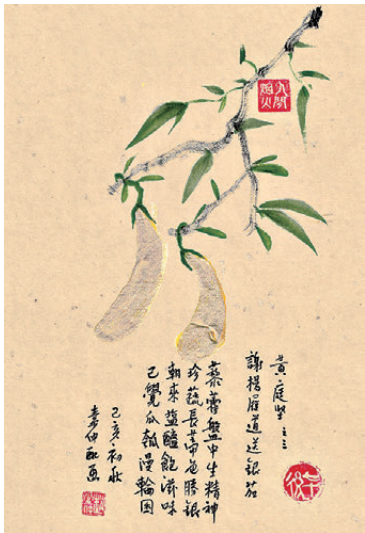 人間煙火
黃庭堅之三
謝楊履道送銀茄
藜藿盤中生精神
珍蔬長蒂色勝銀
朝來鹽醯飽滋味
已覺瓜瓠漫輪囷
己亥初秋
仲配画